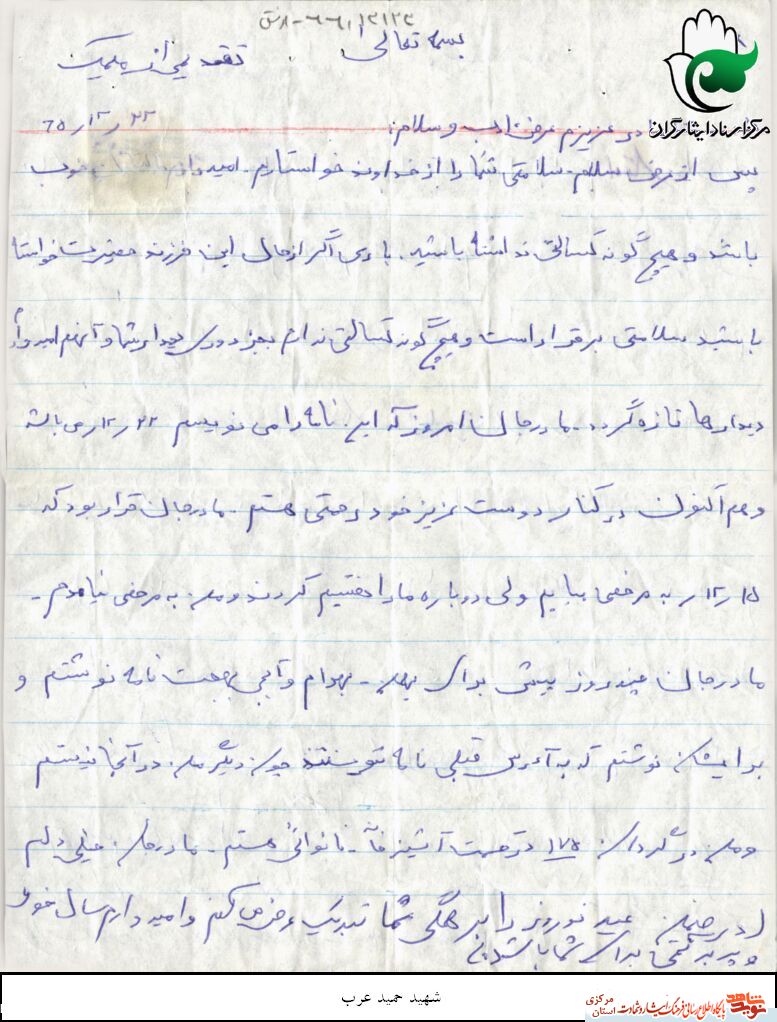 بسمه تعالی
مرکز اسناد ایثارگران
در عزیزم عرض ادب و سلام:
پس از عرض سلام سلامتی شما را از خداوند خواستارم. امیدوارم خوب
باشد و هیچ گونه کسالتی نداشته باشید. باری اگر از حال این فرزند حقیرت خواستا
باشید سلامتی برقرار است و هیچ گونه کسالتی ندارم بجز دوری دیدار شما و آنهم امیدوارم
دیدارها تازه گردد. مادرجان امروز که این نامه را می نویسم ۲۲ر۱۲ر می باشد
و هم اکنون در کنار دوست عزیز خود هستم. مادرجان قرار بود که
۱۵ر۱۲ر به مرخصی بیایم ولی دوباره ما را تقسیم کردند و من به مرخصی نیامدم.
مادرجان چند روز پیش برای بهرام و آبجی بهجت نامه نوشتم و
برایشان نوشتم که به آدرس قبلی نامه ننویسند چون دیگر من در آنجا نیستم
و من در گردان ۱۷۵ در قسمت آشپزخانه نانوائی هستم. مادرجان خیلی دلم
در ضمن عید نوروز را بر همگی شما تبریک عرض می کنم و امیدوارم سال خوب
و پر برکتی برای شما باشد.
شهید حمید عرب
نوید شاهد
پایگاه اطلاع رسانی فرهنگ ایثار و شهادت استان مرکزی